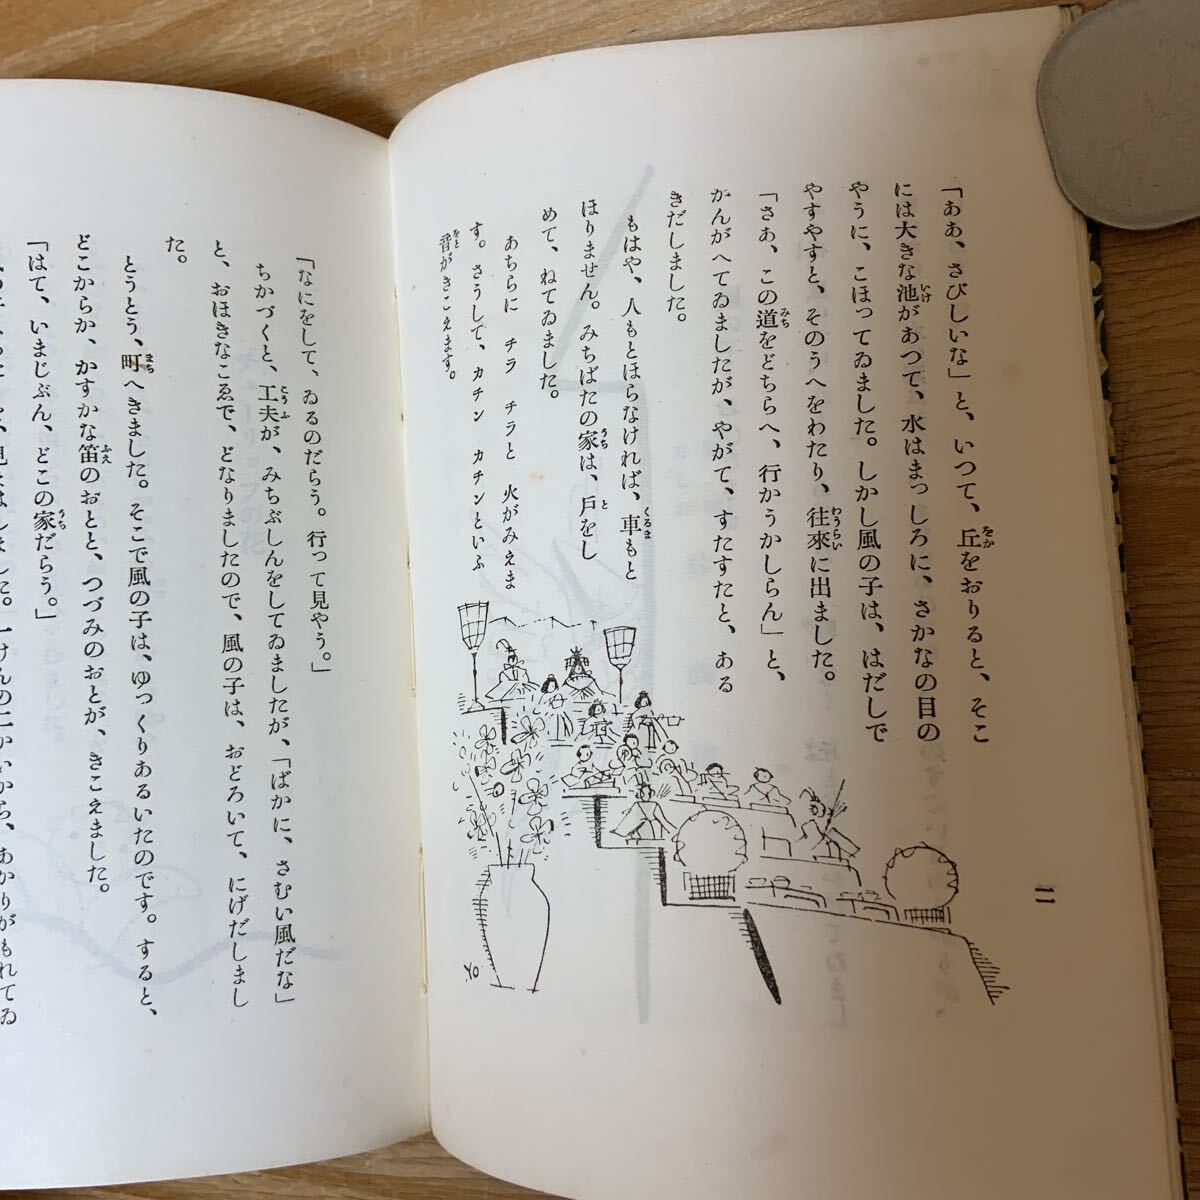 「ああ、さびしいな」と、いつて、丘をおりると、そこ
には大きな池があつて、水はまっしろに、さかなの目の
やうに、こほってゐました。しかし風の子は、はだしで
やすやすと、そのうへをわたり、往來に出ました。
「さあ、この道をどちらへ、行かうかしらん」と、
かんがへてゐましたが、やがて、すたすたと、ある
きだしました。
もはや、人もとほらなければ、車もと
ほりません。みちばたの家は、戸をし
めて、ねてゐました。
あちらに　チラ　チラと　火がみえま
す。さうして、カチン　カチンといふ
音がきこえます。
YO
一一
「なにをして、ゐるのだらう。行って見やう。」
ちかづくと、工夫が、みちぶしんをしてゐましたが、「ばかに、さむい風だな」
と、おほきなこゑで、どなりましたので、風の子は、おどろいて、にげだしまし
た。
とうとう、町へきました。そこで風の子は、ゆっくりあるいたのです。すると、
どこからか、かすかな笛のおとと、つづみのおとが、きこえました。
「はて、いまじぶん、どこの家だらう。」
見まはしました。一けんの二かいから、あかりがもれてゐ